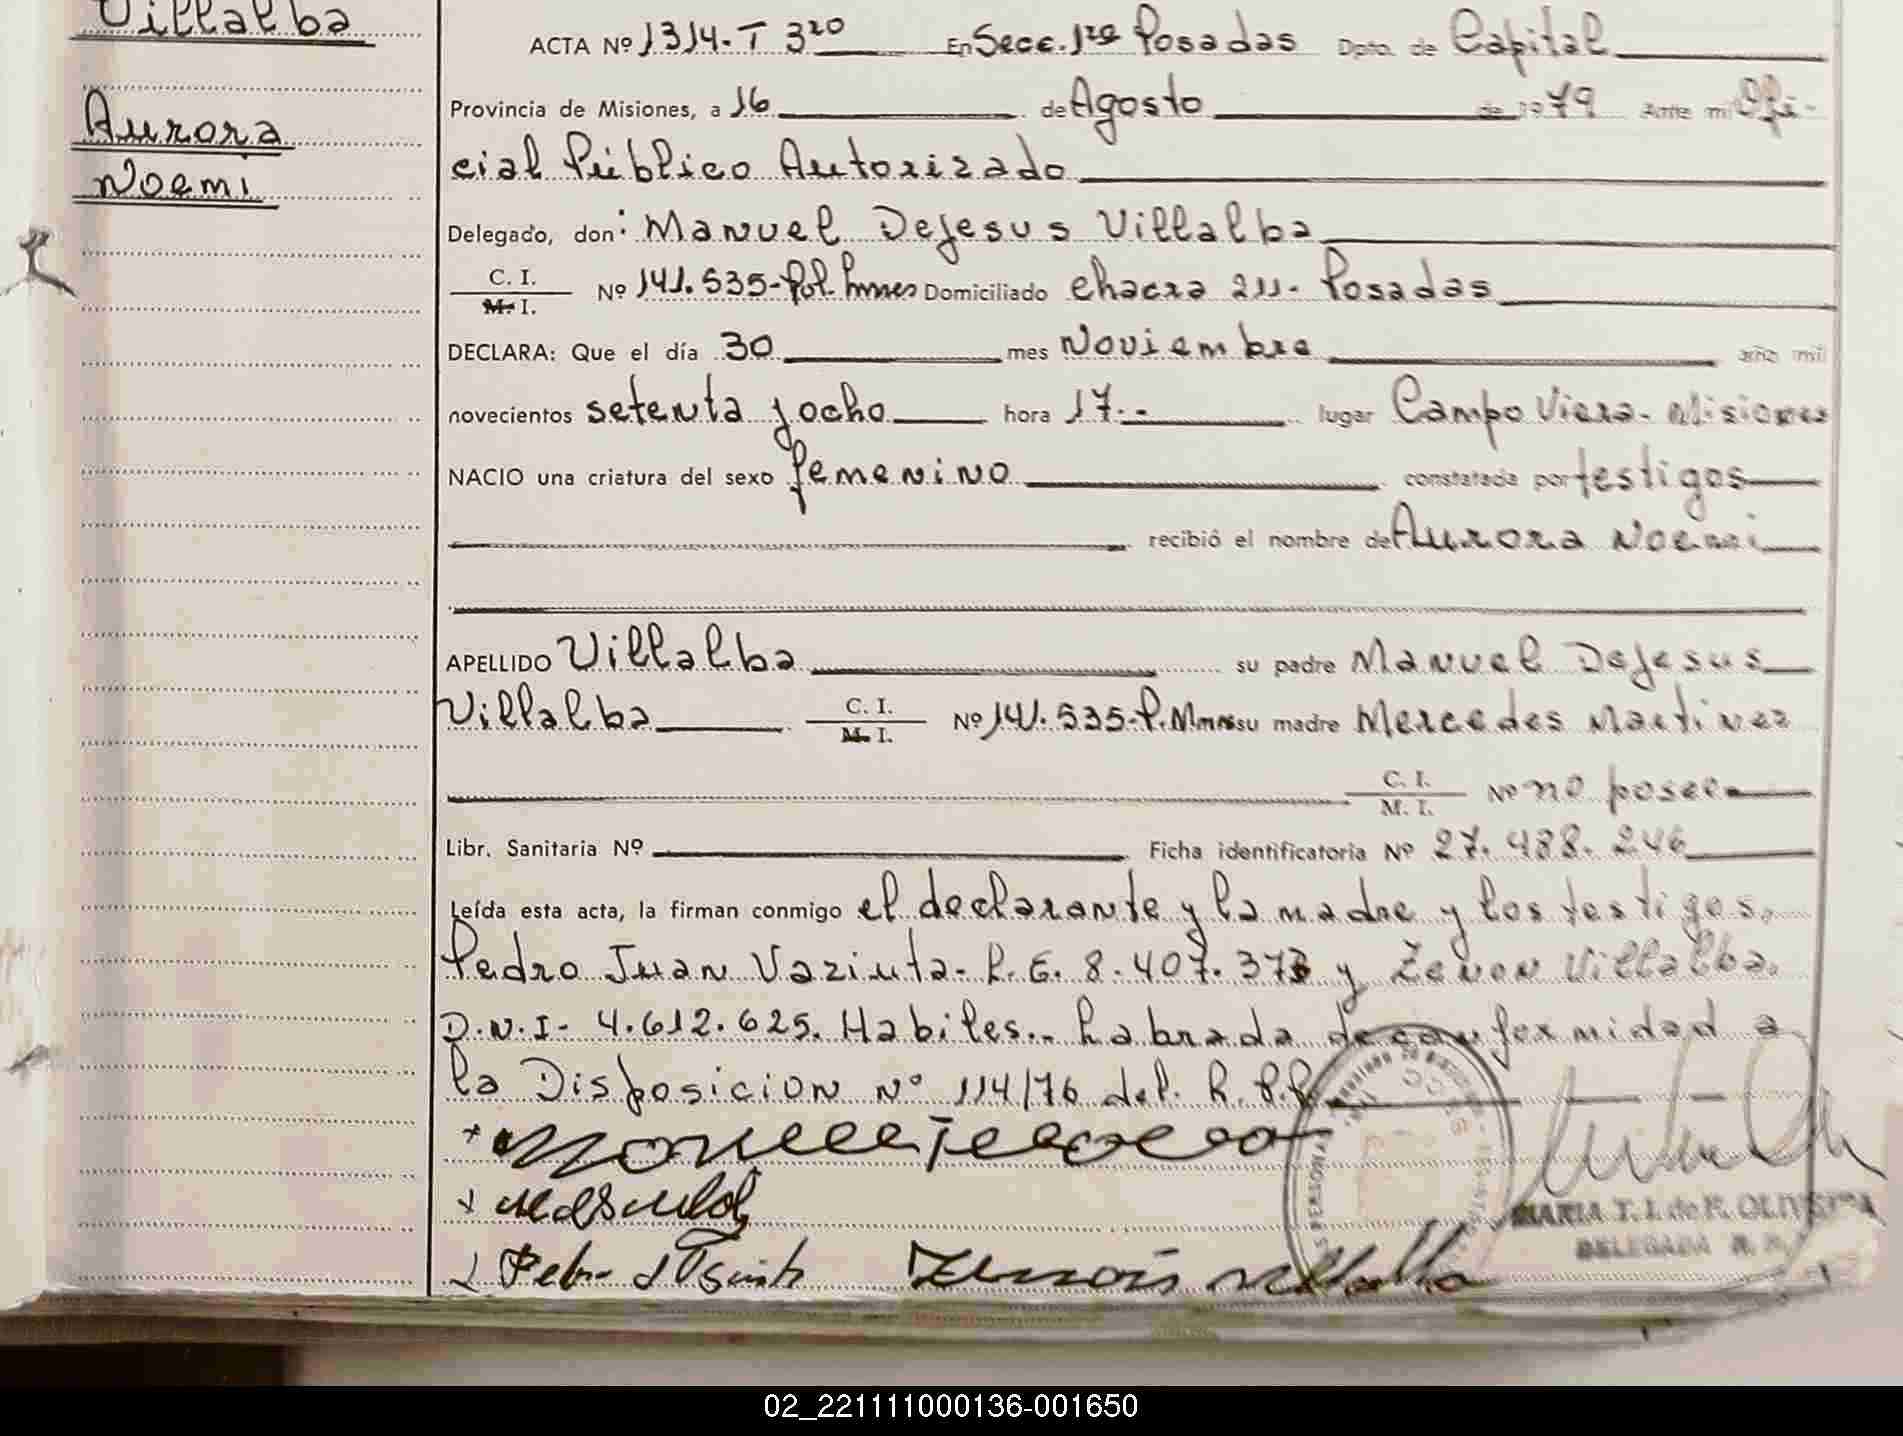 Villalba
Aurora
Noemi
ACTA Nº 1314-T 3º En Secc. 1ra Posadas Dpto. de Capital
Provincia de Misiones, a 16 de Agosto de 1979 Ante mi Ofi-
cial Público Autorizado
Delegado, don: Manuel DeJesus Villalba
C. I.
M. I. Nº 141.535-Pol. Mnes Domiciliado chacra 211- Posadas
DECLARA: Que el día 30 mes Noviembre año mil
novecientos setenta y ocho hora 17.- lugar Campo Viera- Misiones
NACIO una criatura del sexo femenino constatada por testigos
recibió el nombre de Aurora Noemi
APELLIDO Villalba su padre Manuel DeJesus
Villalba C. I. / M. I. Nº 141.535-P.Mnes su madre Mercedes Martinez
C. I. / M. I. Nº no posee
Libr. Sanitaria Nº Ficha identificatoria Nº 27.488.246
Leída esta acta, la firman conmigo el declarante y la madre y los testigos.
Pedro Juan Varinta- L.E. 8.407.373 y Zenon Villalba.
D.N.I- 4.612.625. Habiles.- Labrada de conformidad a
la Disposicion Nº 114/76 del. R.P.P.
MARIA T. I. de F. OLIVEIRA
DELEGADA R. P.
02_221111000136-001650